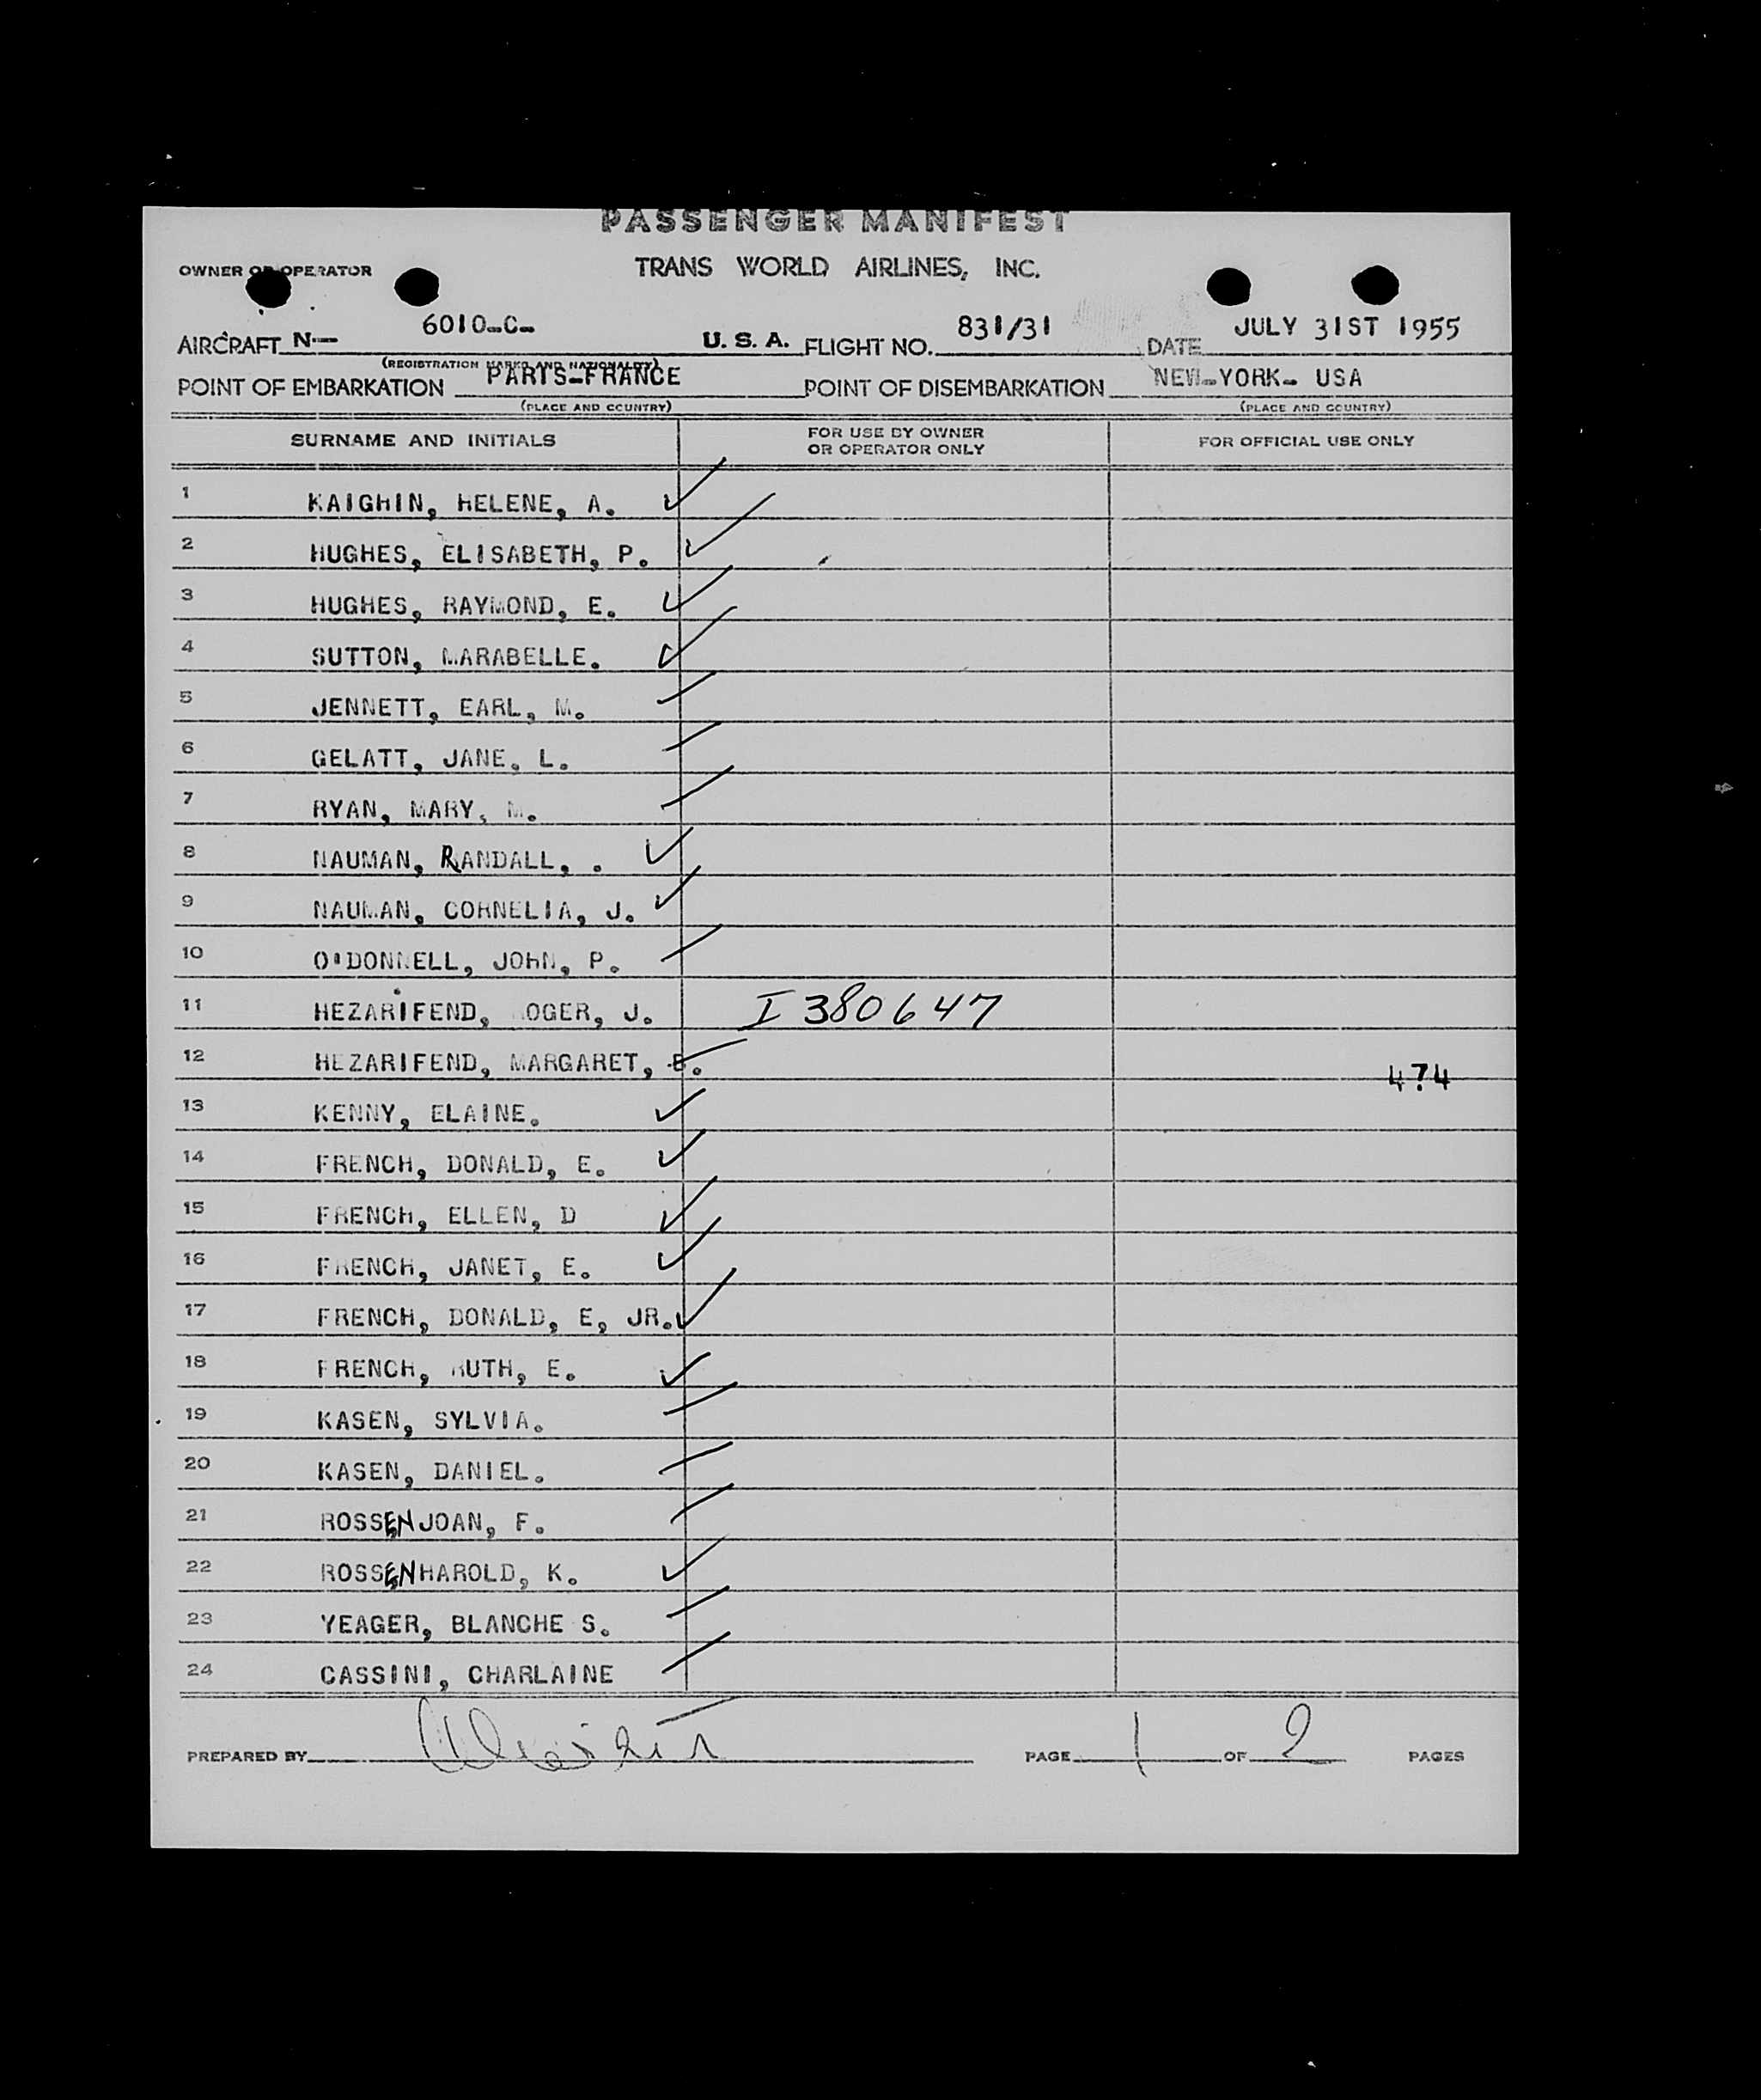 PASSENGER MANIFEST
OWNER OR OPERATOR TRANS WORLD AIRLINES, INC.
AIRCRAFT N— 6010-C- U. S. A. FLIGHT NO. 831/31 DATE JULY 31ST 1955
(REGISTRATION MARKS AND NATIONALITY)
POINT OF EMBARKATION PARIS-FRANCE POINT OF DISEMBARKATION NEW-YORK- USA
(PLACE AND COUNTRY) (PLACE AND COUNTRY)
SURNAME AND INITIALS FOR USE BY OWNER OR OPERATOR ONLY FOR OFFICIAL USE ONLY
1 KAIGHIN, HELENE, A.
2 HUGHES, ELISABETH, P.
3 HUGHES, RAYMOND, E.
4 SUTTON, MARABELLE.
5 JENNETT, EARL, M.
6 GELATT, JANE, L.
7 RYAN, MARY, M.
8 NAUMAN, RANDALL, .
9 NAUMAN, CORNELIA, J.
10 O'DONNELL, JOHN, P.
11 HEZARIFEND, OGER, J. I 380647
12 HEZARIFEND, MARGARET, E.
474
13 KENNY, ELAINE.
14 FRENCH, DONALD, E.
15 FRENCH, ELLEN, D
16 FRENCH, JANET, E.
17 FRENCH, DONALD, E, JR.
18 FRENCH, RUTH, E.
19 KASEN, SYLVIA.
20 KASEN, DANIEL.
21 ROSSEN, JOAN, F.
22 ROSSEN, HAROLD, K.
23 YEAGER, BLANCHE S.
24 CASSINI, CHARLAINE
PREPARED BY PAGE 1 OF 2 PAGES